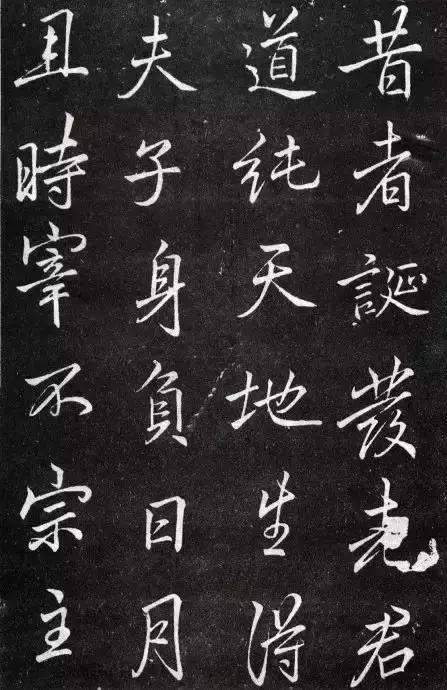 昔者誕發君
道純天地生得
夫子身負日月
且時宰不宗主